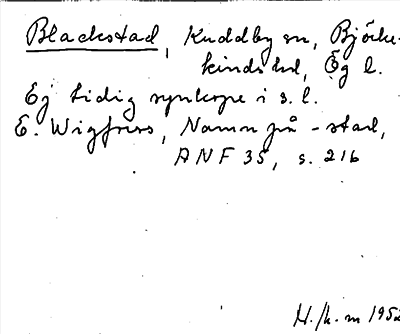 Blackstad, Kuddby sn, Björke-
kinds hd, Ög l.
Ej tidig synkope i s. l.
E. Wigforss, Namn på -stad,
ANF 35, s. 216
H./k. m 1952